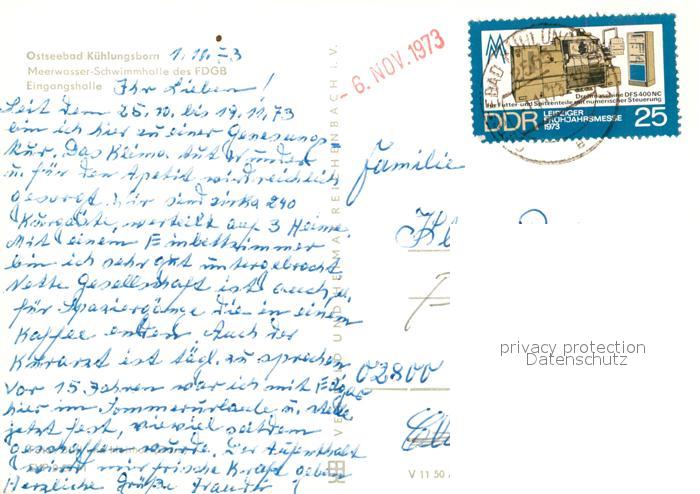 Ostseebad Kühlungsborn
Meerwasser-Schwimmhalle des FDGB
Eingangshalle
1.11.73
Ihr Lieben!
Seit dem 25.10. bis 19.11.73
bin ich hier zu einer Genesungs
kur. Das Klima tut Wunder
u. für den Apetit wird reichlich
gesorgt. Wir sind zirka 240
Kurgäste, werteilt auf 3 Heime.
Mit einem Einbettzimmer
bin ich sehr gut untergebracht
Nette Gesellschaft ist auch
für Spaziergänge die in einem
Kaffee enden. Auch der
Kurarzt ist tägl. zu sprechen
Vor 15 Jahren war ich mit Edgar
hier im Sommerurlaub u. stelle
jetzt fest, wieviel seitdem
geschaffen wurde. Der Aufenthalt
wird mir frische Kraft geben
Herzliche Grüße
- 6. NOV. 1973
MM
Drehmaschine DFS 400 NC
für Futter- und Spitzenteile mit numerischer Steuerung
DDR LEIPZIGER
FRÜHJAHRSMESSE
1973
25
Familie
02800
V 11 50
privacy protection
Datenschutz